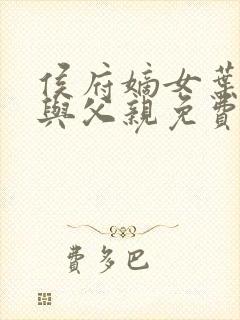 侯府嫡女葉
與父親免費
費多巴